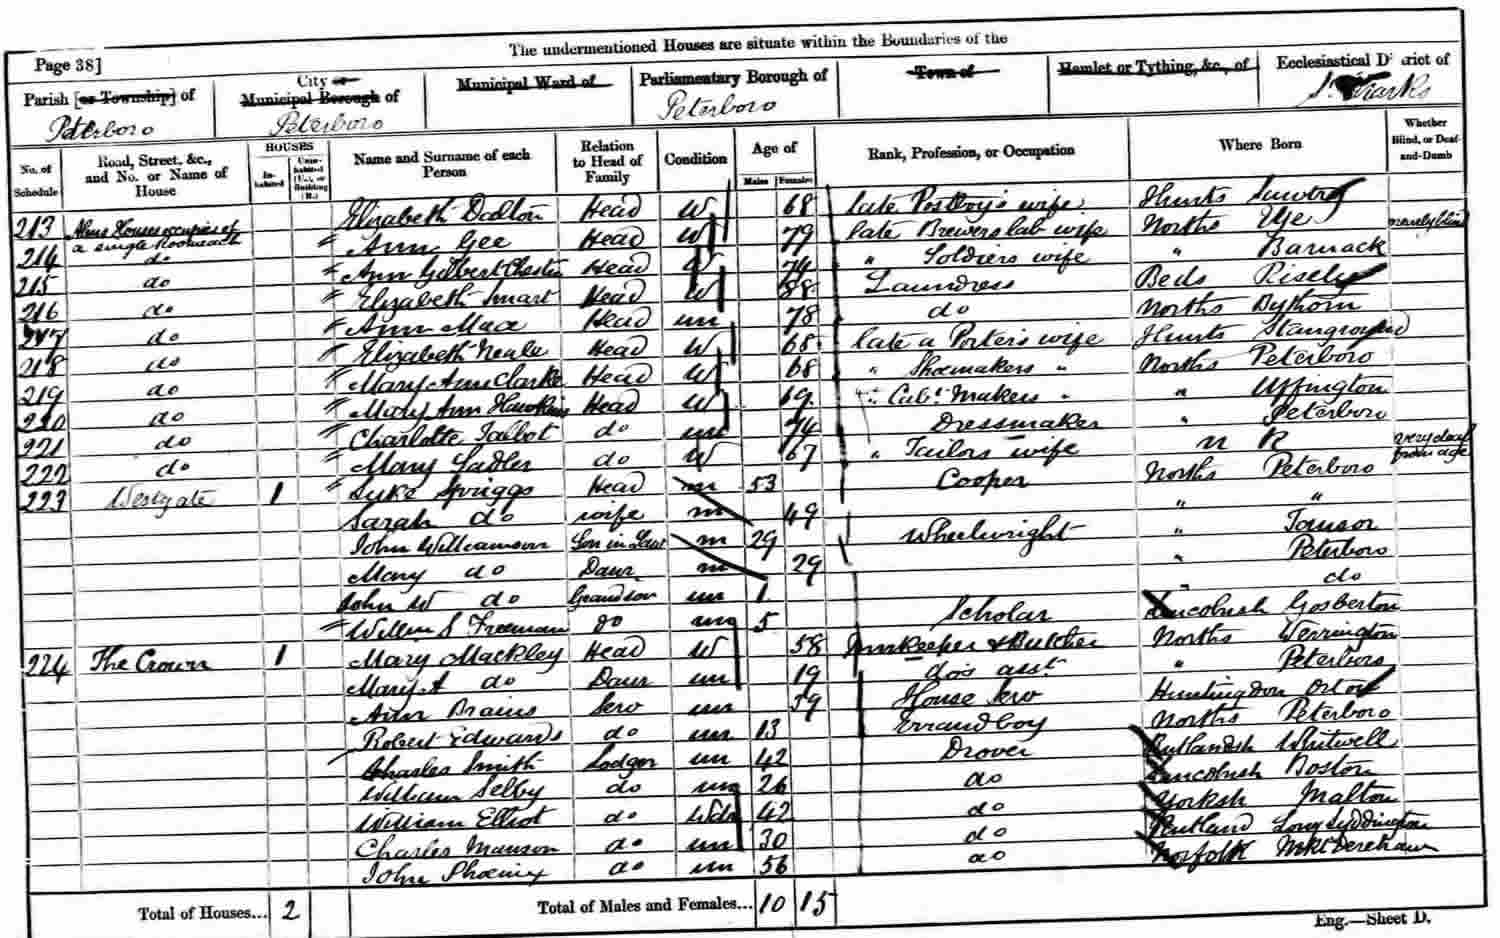 The undermentioned Houses are situate within the Boundaries of the
Page 38]
Parish [or Township] of Peterboro
City or Municipal Borough of Peterboro
Municipal Ward of
Parliamentary Borough of Peterboro
Town of
Hamlet or Tything, &c., of
Ecclesiastical District of St Marks
No. of Schedule
Road, Street, &c., and No. or Name of House
HOUSES
Inhabited
Uninhabited (U.), or Building (B.)
Name and Surname of each Person
Relation to Head of Family
Condition
Age of
Males
Females
Rank, Profession, or Occupation
Where Born
Whether Blind, or Deaf-and-Dumb
213 Alms Houses occupies of a single Room each Elizabeth Dalton Head W 68 late Postboy's wife Hunts
214 do Ann Gee Head W 79 late Brewers lab wife Norths Eye nearly blind
215 do Ann Gilbert Chester Head W 74 " Soldiers wife " Barnack
216 do Elizabeth Smart Head W 88 Laundress Beds Risely
217 do Ann Mace Head un 78 do Norths Bythorn
218 do Elizabeth Neale Head W 68 late a Porter's wife Hunts Stanground
219 do Mary Ann Clarke Head W 68 " Shoemakers " Norths Peterboro
220 do Mary Ann Hawkins Head W 69 " Cabt Makers " " Uffington
221 do Charlotte Talbot do un 74 Dressmaker " Peterboro
222 do Mary Sadler do W 67 " Tailors wife N K very deaf from age
223 Westgate 1 Luke Spriggs Head m 53 Cooper Norths Peterboro
Sarah do wife m 49 " "
John Williamson Son in Law m 29 Wheelwright " Tansor
Mary do Daur m 29 " Peterboro
John W do Grandson un 1 " do
William S Freeman do un 5 Scholar Lincolnsh Gosberton
224 The Crown 1 Mary Mackley Head W 58 Innkeeper & Butcher Norths Werrington
Mary A do Daur un 19 do's asst " Peterboro
Ann Brains Serv un 39 House Serv Huntingdon Orton
Robert Edwards do un 13 Errand boy Norths Peterboro
Charles Smith Lodger un 42 Drover Rutlandsh Whitwell
William Selby do un 26 do Lincolnsh Boston
William Elliot do Wdr 42 do Yorksh Malton
Charles Manson do un 30 do Rutland Long Lyddington
John Phoenix do un 56 do Norfolk Mkt Dereham
Total of Houses... 2
Total of Males and Females... 10 15
Eng.—Sheet D.